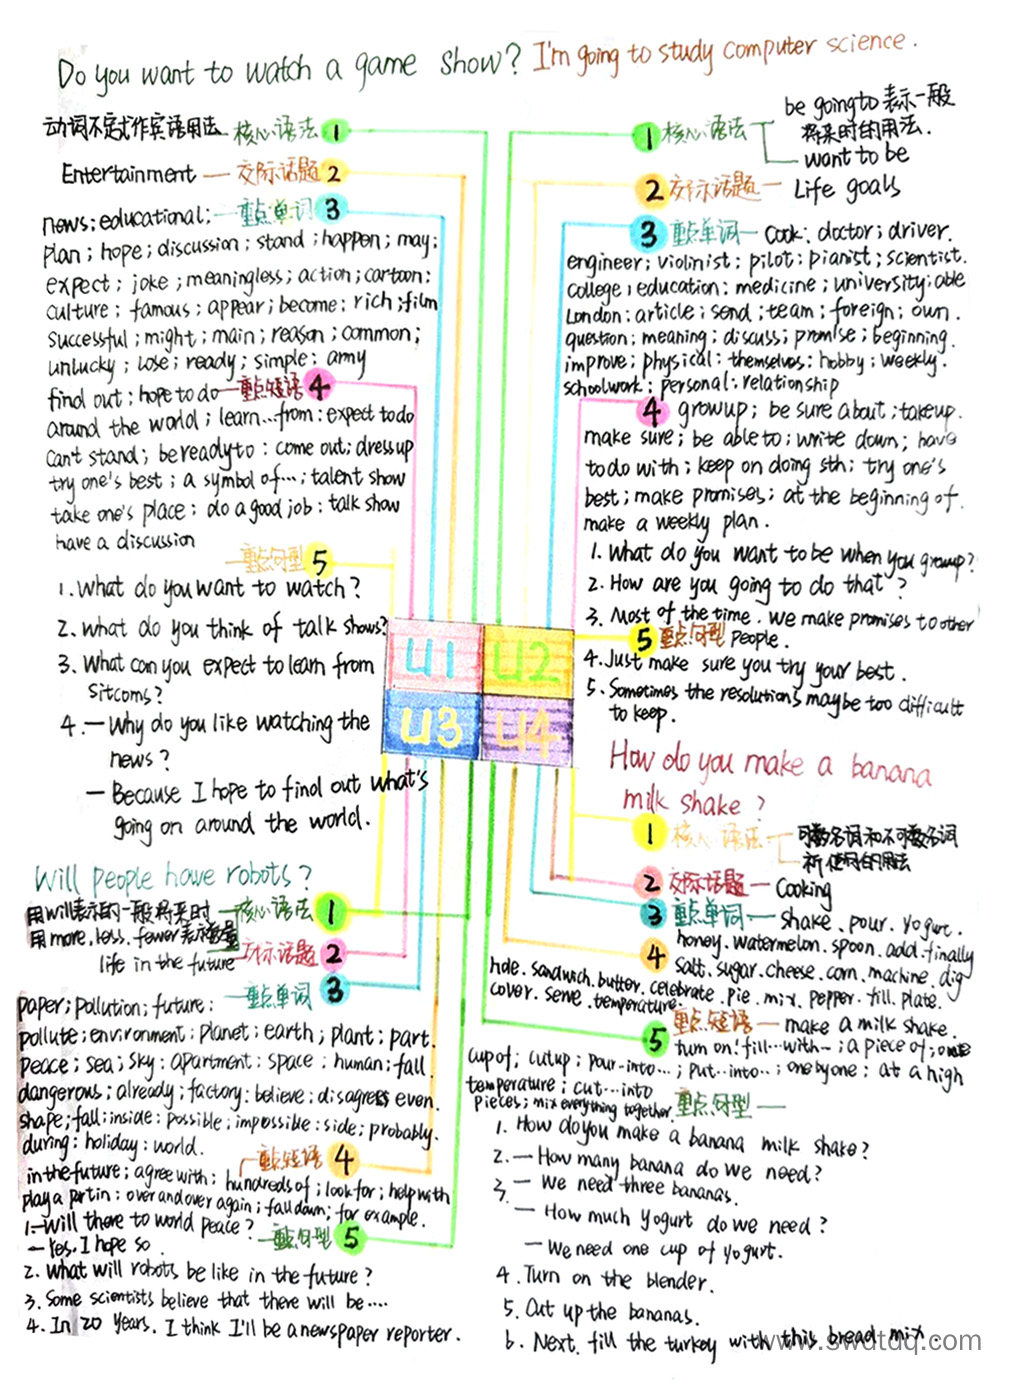 Do you want to watch a game show?
动词不定式作宾语用法 核心语法 1
Entertainment 交际话题 2
重点单词 3
news; educational;
plan; hope; discussion; stand; happen; may;
expect; joke; meaningless; action; cartoon;
culture; famous; appear; become; rich; film
successful; might; main; reason; common;
unlucky; lose; ready; simple; army
重点短语 4
find out; hope to do
around the world; learn...from; expect to do
can't stand; be ready to; come out; dress up
try one's best; a symbol of...; talent show
take one's place; do a good job; talk show
have a discussion
重点句型 5
1. What do you want to watch?
2. What do you think of talk shows?
3. What can you expect to learn from
sitcoms?
4. — Why do you like watching the
news?
— Because I hope to find out what's
going on around the world.
I'm going to study computer science.
1 核心语法
be going to 表示一般
将来时的用法.
want to be
2 交际话题 Life goals
3 重点单词 Cook; doctor; driver.
engineer; violinist; pilot; pianist; scientist.
college; education; medicine; university; able
London; article; send; team; foreign; own.
question; meaning; discuss; promise; beginning.
improve; physical; themselves; hobby; weekly.
schoolwork; personal; relationship
4 grow up; be sure about; take up.
make sure; be able to; write down; have
to do with; keep on doing sth; try one's
best; make promises; at the beginning of.
make a weekly plan.
1. What do you want to be when you grow up?
2. How are you going to do that?
3. Most of the time. we make promises to other
5 重点句型 People.
4. Just make sure you try your best.
5. Sometimes the resolutions may be too difficult
to keep.
U1 U2
U3 U4
Will people have robots?
用will表示的一般将来时 核心语法 1
用more, less, fewer表示数量
交际话题 2
life in the future
重点单词 3
paper; pollution; future;
pollute; environment; planet; earth; plant; part.
peace; sea; sky; apartment; space; human; fall.
dangerous; already; factory; believe; disagree; even.
shape; fall; inside; possible; impossible; side; probably.
during; holiday; world.
重点短语 4
in the future; agree with; hundreds of; look for; help with
play a part in; over and over again; fall down; for example.
1. — Will there to world peace?
— Yes. I hope so.
重点句型 5
2. What will robots be like in the future?
3. Some scientists believe that there will be....
4. In 20 years. I think I'll be a newspaper reporter.
How do you make a banana
milk shake?
1 核心语法
可数名词和不可数名词
祈使句的用法
2 交际话题 Cooking
3 重点单词 shake. pour. yogurt.
4 honey. watermelon. spoon. add. finally
salt. sugar. cheese. corn. machine. dig
hole. sandwich. butter. celebrate. pie. mix. pepper. fill. plate.
cover. serve. temperature.
5 重点短语 make a milk shake.
turn on; fill...with~; a piece of;
cup of; cut up; pour...into...; put...into...; one by one; at a high
temperature; cut...into
pieces; mix everything together. 重点句型
1. How do you make a banana milk shake?
2. — How many banana do we need?
— We need three bananas.
3. — How much yogurt do we need?
— We need one cup of yogurt.
4. Turn on the blender.
5. Cut up the bananas.
6. Next. fill the turkey with this bread mix.
www.swdtdq.com